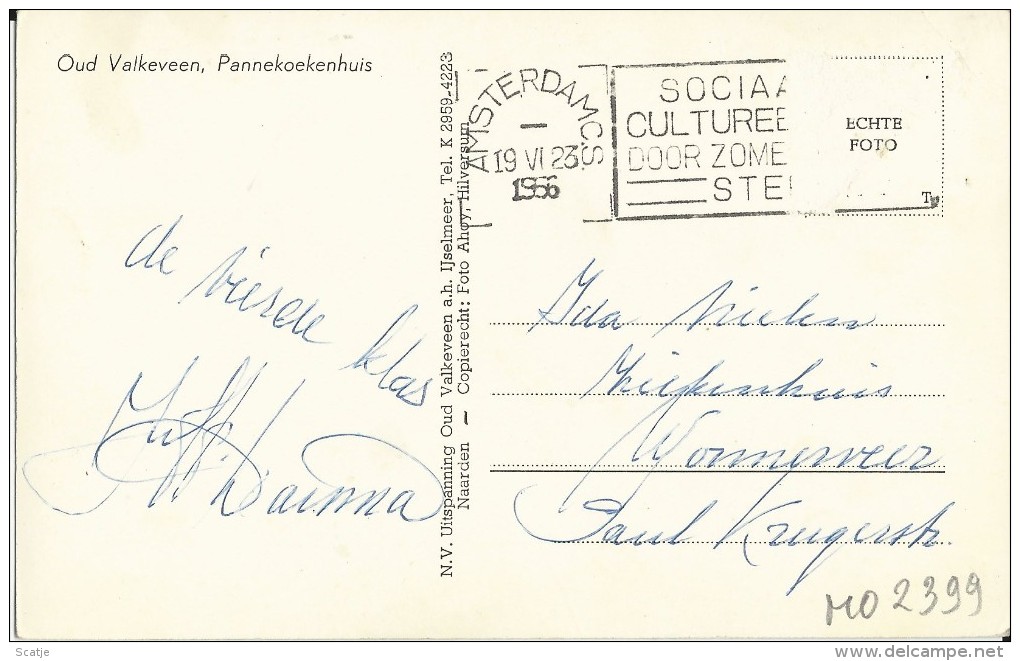 Oud Valkeveen, Pannekoekenhuis
AMSTERDAM C.S.
19 VI 23
1956
SOCIAA
CULTUREE
DOOR ZOME
STE
ECHTE
FOTO
N.V. Uitspanning Oud Valkeveen a.h. IJselmeer, Tel. K 2959-4223
Naarden — Copierecht: Foto Ahoy, Hilversum
de vierde klas
Juff.
Ida
Ziekenhuis
Wormerveer
Paul Krugerstr.
MO 2399
Scatje
delcampe.net